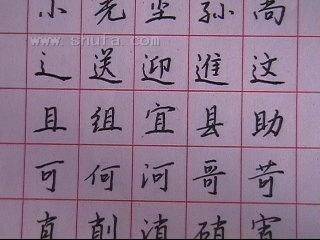 小 光 坐 孙 尚
www.shufa.com
辶 送 迎 進 这
且 组 宜 县 助
可 何 河 哥 苛
直 真